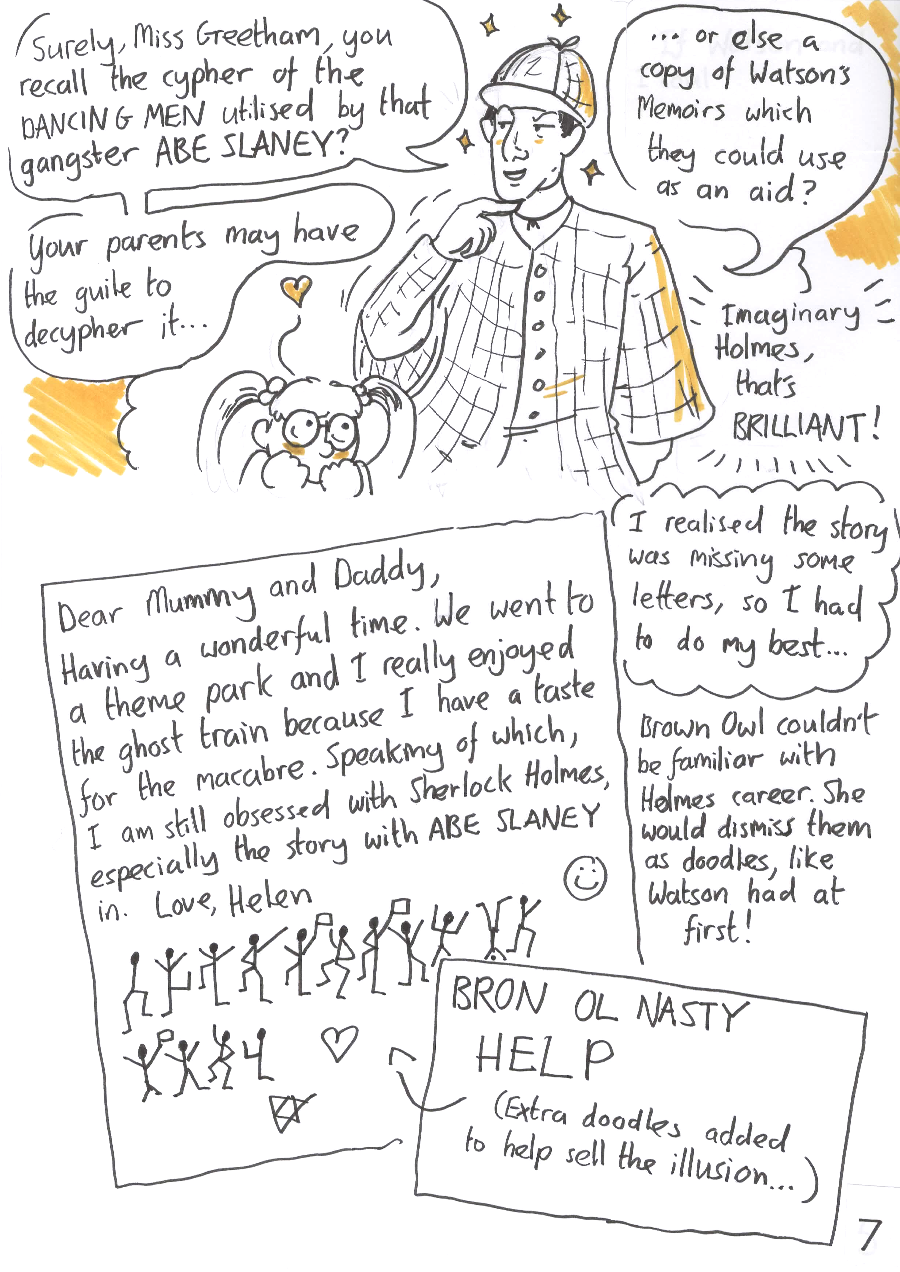 Surely, Miss Greetham, you
recall the cypher of the
DANCING MEN utilised by that
gangster ABE SLANEY?
Your parents may have
the guile to
decypher it...
... or else a
copy of Watson's
Memoirs which
they could use
as an aid?
Imaginary
Holmes,
that's
BRILLIANT!
Dear Mummy and Daddy,
Having a wonderful time. We went to
a theme park and I really enjoyed
the ghost train because I have a taste
for the macabre. Speaking of which,
I am still obsessed with Sherlock Holmes,
especially the story with ABE SLANEY
in. Love, Helen
I realised the story
was missing some
letters, so I had
to do my best...
Brown Owl couldn't
be familiar with
Holmes career. She
would dismiss them
as doodles, like
Watson had at
first!
BRON OL NASTY
HELP
(Extra doodles added
to help sell the illusion...)
7